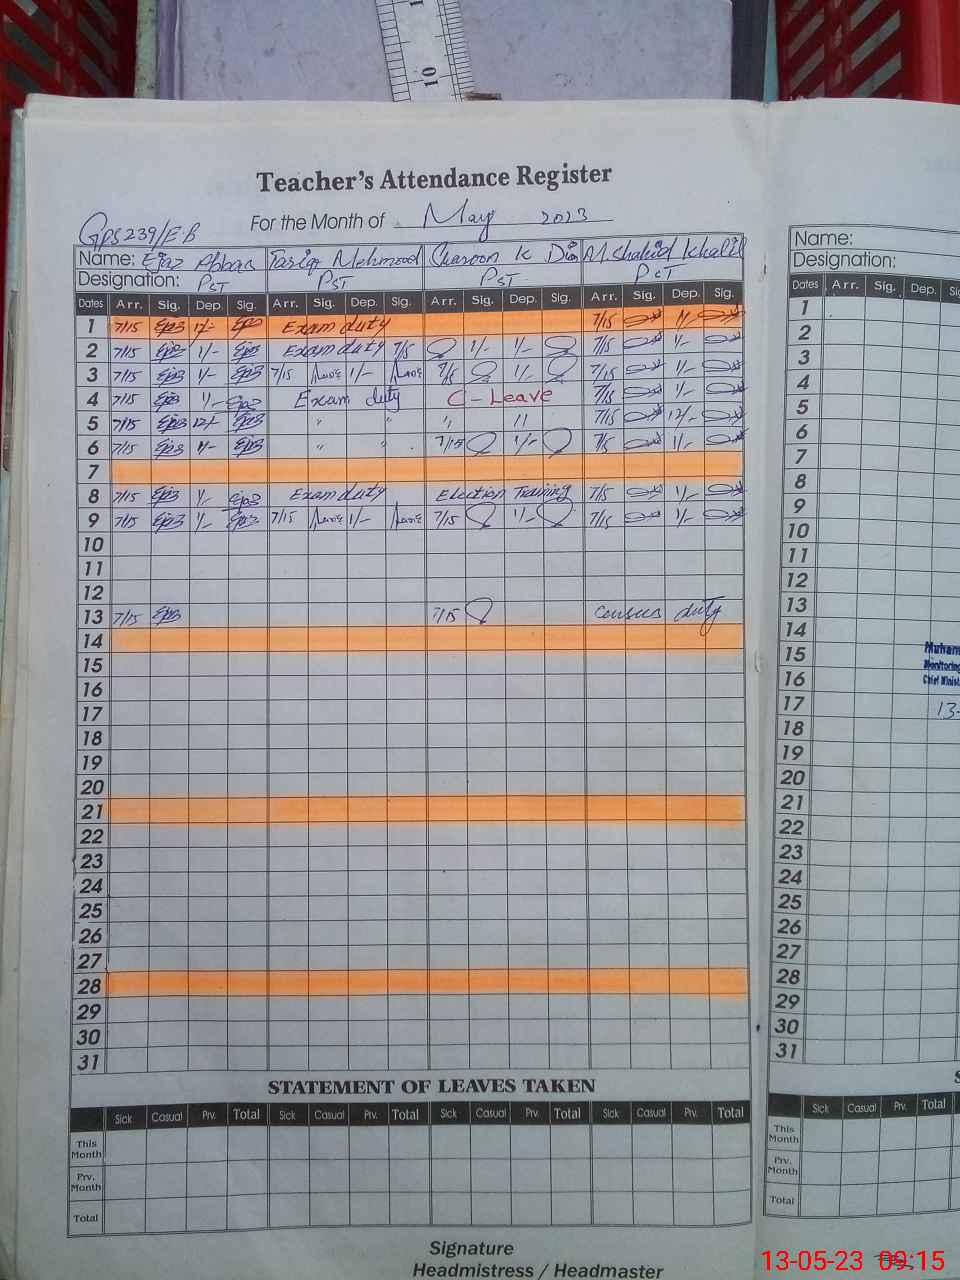 10
Teacher's Attendance Register
For the Month of May 2023
GPS 239/E.B
Name: Ejaz Abbas Tariq Mehmood Haroon K Din M Shahid Khalil
Designation: PST PST PST PST
Dates Arr. Sig. Dep. Sig. Arr. Sig. Dep. Sig. Arr. Sig. Dep. Sig. Arr. Sig. Dep. Sig.
1 7/15 1/- Exam duty 7/15 1/-
2 7/15 1/- Exam duty 7/5 1/- 1/- 7/15 1/-
3 7/15 1/- 7/15 1/- 7/5 1/- 7/15 1/-
4 7/15 1/- Exam duty C-Leave 7/15 1/-
5 7/15 12/- " " " " 7/15 12/-
6 7/15 1/- " " 7/15 1/- 7/5 1/-
7
8 7/15 1/- Exam duty Election Training 7/5 1/-
9 7/15 1/- 7/15 1/- 7/15 1/- 7/15 1/-
10
11
12
13 7/15 7/15 Census duty
14
15
16
17
18
19
20
21
22
23
24
25
26
27
28
29
30
31
STATEMENT OF LEAVES TAKEN
Sick Casual Prv. Total Sick Casual Prv. Total Sick Casual Prv. Total Sick Casual Prv. Total
This Month
Prv. Month
Total
Signature
Headmistress / Headmaster
Name:
Designation:
Dates Arr. Sig. Dep.
1
2
3
4
5
6
7
8
9
10
11
12
13
14
15
16
17
18
19
20
21
22
23
24
25
26
27
28
29
30
31
Muham
Monitoring
Chief Minist
13-
S
Sick Casual Prv. Total
This Month
Prv. Month
Total
13-05-23 09:15